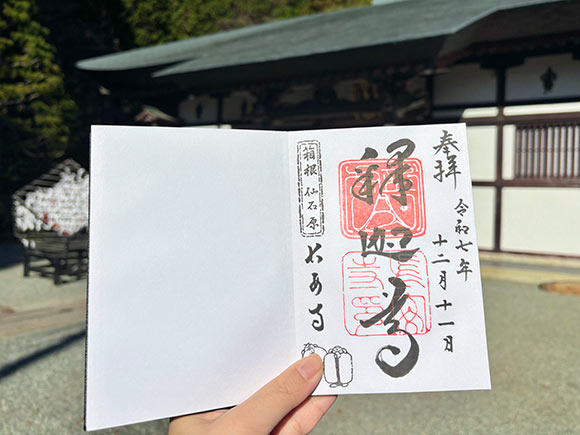 奉拝
令和七年
十二月十一日
釋迦尊
箱根仙石原
長安寺